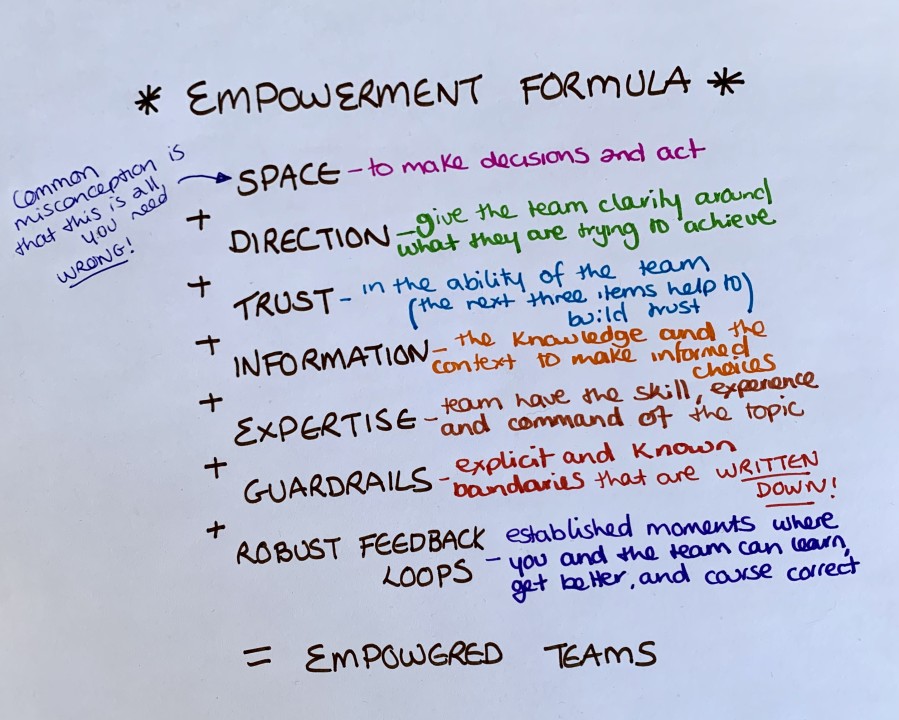 * EMPOWERMENT FORMULA *
Common
misconception is
that this is all
you need
WRONG!
SPACE - to make decisions and act
+
DIRECTION - give the team clarity around
what they are trying to achieve
+
TRUST - in the ability of the team
(the next three items help to)
build trust
+
INFORMATION - the knowledge and the
context to make informed
choices
+
EXPERTISE - team have the skill, experience
and command of the topic
+
GUARDRAILS - explicit and known
bandaries that are WRITTEN
DOWN!
+
ROBUST FEEDBACK
LOOPS - established moments where
you and the team can learn,
get better, and course correct
= EMPOWERED TEAMS